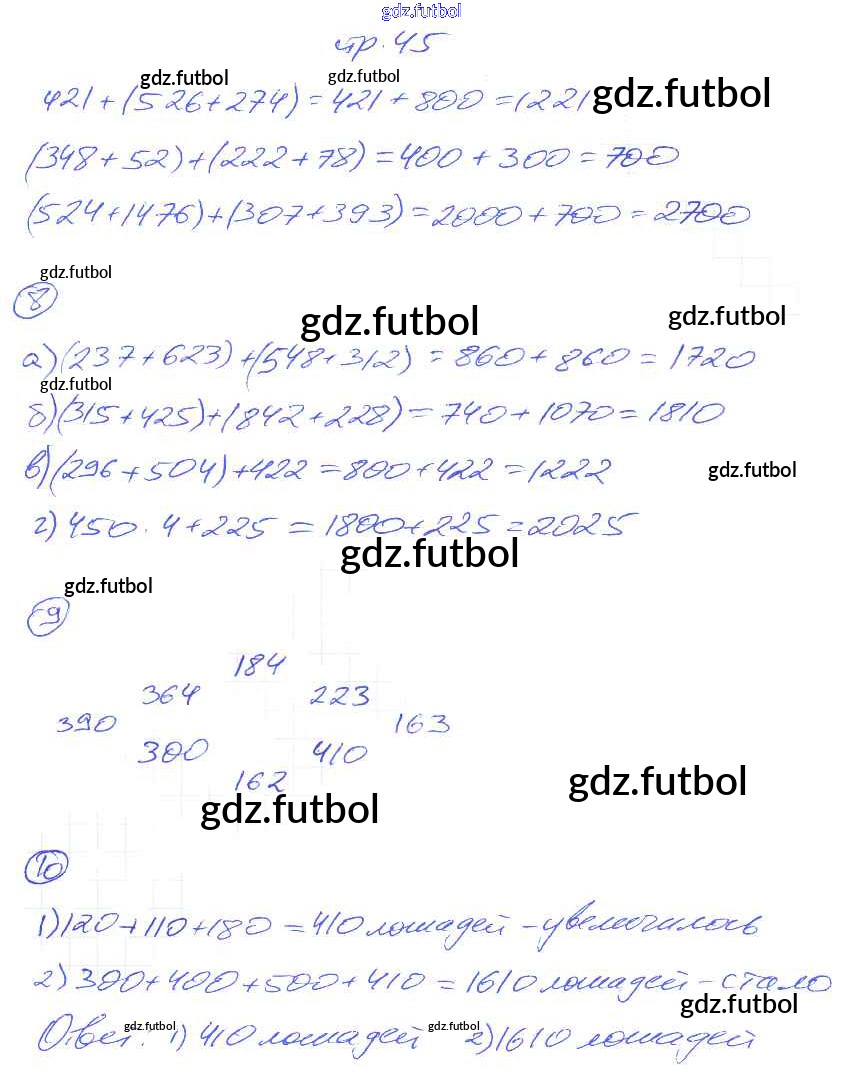 gdz.futbol
стр. 45
gdz.futbol gdz.futbol
421 + (526 + 274) = 421 + 800 = 1221 gdz.futbol
(348 + 52) + (222 + 78) = 400 + 300 = 700
(524 + 1476) + (307 + 393) = 2000 + 700 = 2700
gdz.futbol
8
gdz.futbol gdz.futbol
а) (237 + 623) + (548 + 312) = 860 + 860 = 1720
gdz.futbol
б) (315 + 425) + (842 + 228) = 740 + 1070 = 1810
в) (296 + 504) + 422 = 800 + 422 = 1222 gdz.futbol
г) 450 · 4 + 225 = 1800 + 225 = 2025
gdz.futbol
gdz.futbol
9
184
364 223
390 163
300 410
162
gdz.futbol gdz.futbol
10
1) 120 + 110 + 180 = 410 лошадей - увеличилось
2) 300 + 400 + 500 + 410 = 1610 лошадей - стало
gdz.futbol
Ответ: gdz.futbol 1) 410 лошадей gdz.futbol 2) 1610 лошадей